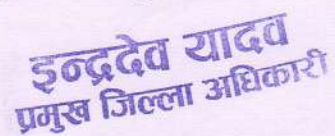 इन्द्रदेव यादव
प्रमुख जिल्ला अधिकारी